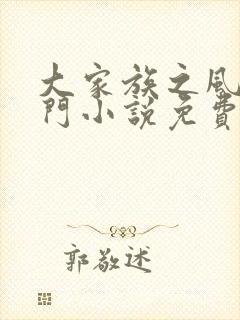 大家族之風
門小説免費
郭敬述